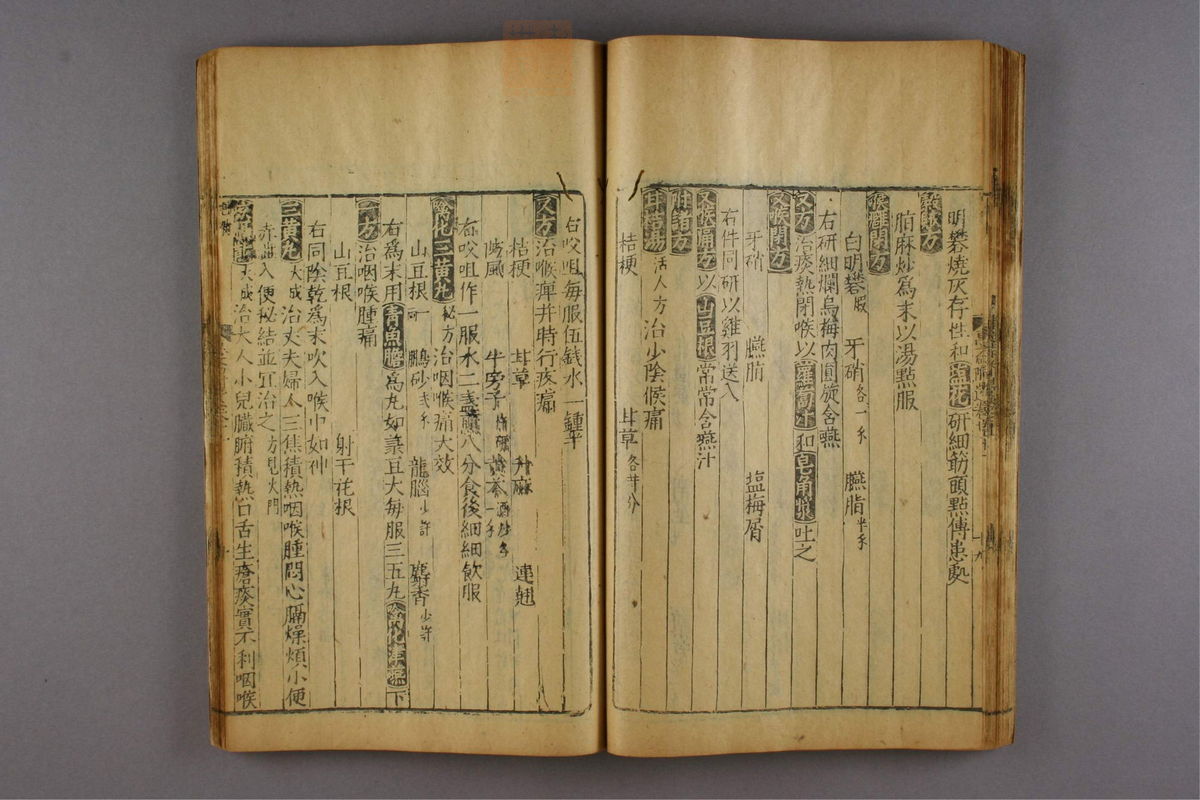 明礬燒灰存性和塩花研細筯頭點傅患處
胡麻炒為末以湯點服
喉闭方
白明礬 牙硝各一 臙脂半
右研細爛烏梅肉圓旋含嚥
又方治痰熱閉喉以蘿蔔汁和皂角漿吐之
又喉閉方
牙硝 臙脂 塩梅屑
右件同研以雞羽送入
又喉痛方以山豆根常常含嚥汁
甘桔湯活人方治少陰喉痛
桔梗 甘草各等分
右㕮咀每服伍錢水一鍾半
又方治喉痺并時行疼痛
桔梗 甘草 升麻 連翹
防風 牛旁子 黃芩
右㕮咀作一服水二盞煎八分食後細細飲服
噙化三黃丸秘方治咽喉痛大效
山豆根一 鵬砂 龍腦少許 麝香少許
右為末用青魚膽為丸如菉豆大每服三五丸噙化津嚥下
一方治咽喉腫痛
山豆根 射干花根
右同陰乾為末吹入喉中如神
三黃丸大成治丈夫婦人三焦積熱咽喉腫悶心膈燥煩小便
赤澁大便秘結並宜治之方見火門
大成治大人小兒臟腑積熱口舌生瘡痰實不利咽喉